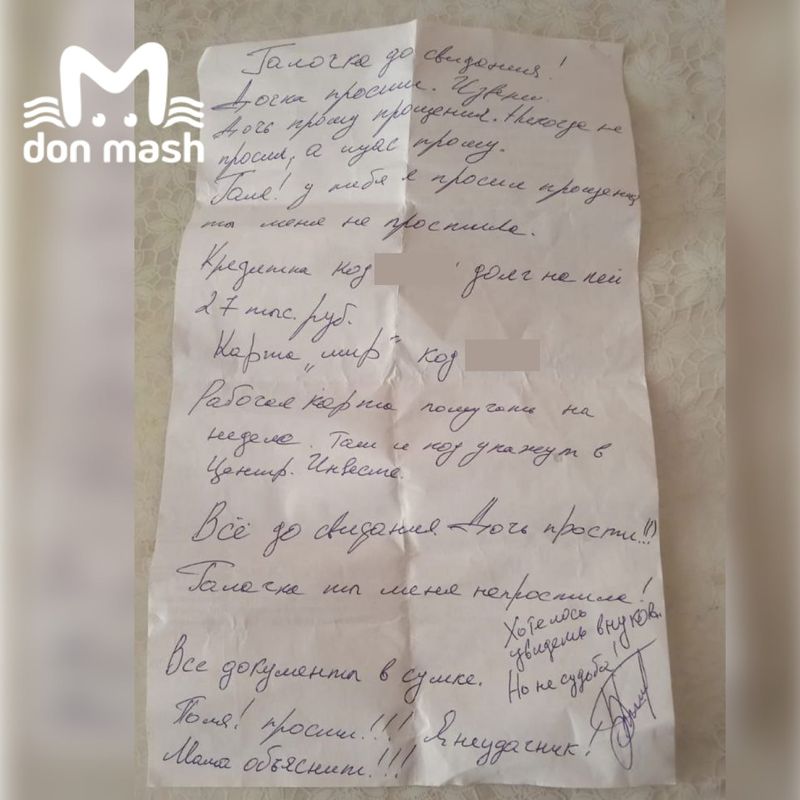 don mash
Галочка до свидания!
Дочка прости. Извени.
Дочь прошу прощения. Никогда не
просил, а щас прошу.
Галя! у тебя я просил прощения
ты меня не простила.
Кредитка код долг на ней
27 тыс. руб.
Карта "мир" код
Рабочая карта получать на
неделе. Там и код укажут в
Центр. Инвесте.
Всё до свидания. Дочь прости!!!
Галочка ты меня непростила!
Хотелось
увидеть внуков.
Но не судьба!
Все документы в сумке.
Поля! прости!!! Я неудачник!
Мама объяснит!!!